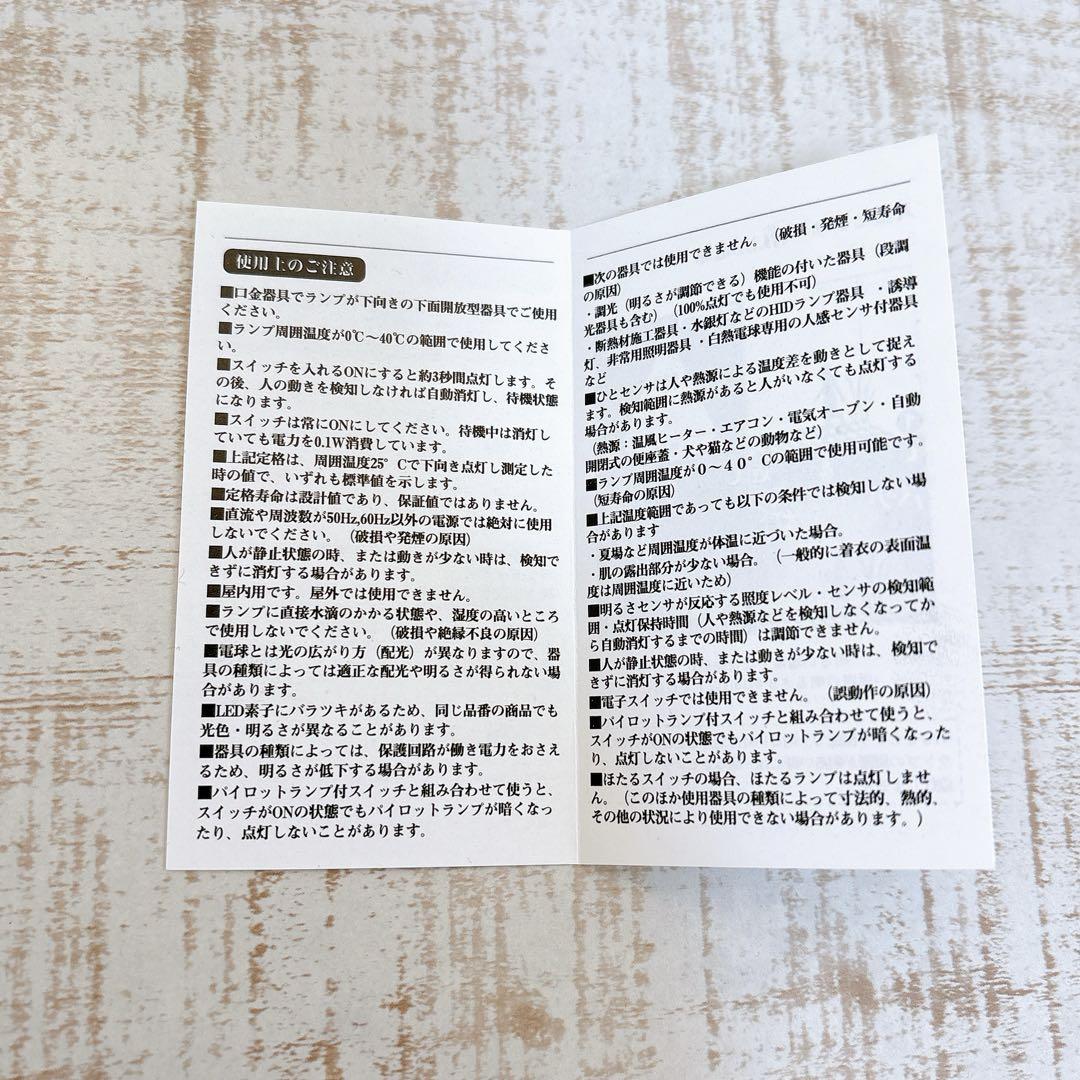 使用上のご注意
■口金器具でランプが下向きの下面開放型器具でご使用
ください。
■ランプ周囲温度が0℃～40℃の範囲で使用してくださ
い。
■スイッチを入れるONにすると約3秒間点灯します。そ
の後、人の動きを検知しなければ自動消灯し、待機状態
になります。
■スイッチは常にONにしてください。待機中は消灯し
ていても電力を0.1W消費しています。
■上記定格は、周囲温度25°Cで下向き点灯し測定した
時の値で、いずれも標準値を示します。
■定格寿命は設計値であり、保証値ではありません。
■直流や周波数が50Hz,60Hz以外の電源では絶対に使用
しないでください。（破損や発煙の原因）
■人が静止状態の時、または動きが少ない時は、検知で
きずに消灯する場合があります。
■屋内用です。屋外では使用できません。
■ランプに直接水滴のかかる状態や、湿度の高いところ
で使用しないでください。（破損や絶縁不良の原因）
■電球とは光の広がり方（配光）が異なりますので、器
具の種類によっては適正な配光や明るさが得られない場
合があります。
■LED素子にバラツキがあるため、同じ品番の商品でも
光色・明るさが異なることがあります。
■器具の種類によっては、保護回路が働き電力をおさえ
るため、明るさが低下する場合があります。
■パイロットランプ付スイッチと組み合わせて使うと、
スイッチがONの状態でもパイロットランプが暗くなっ
たり、点灯しないことがあります。
■次の器具では使用できません。（破損・発煙・短寿命
の原因）
・調光（明るさが調節できる）機能の付いた器具（段調
光器具も含む）（100%点灯でも使用不可）
・断熱材施工器具・水銀灯などのHIDランプ器具 ・誘導
灯、非常用照明器具・白熱電球専用の人感センサ付器具
など
■ひとセンサは人や熱源による温度差を動きとして捉え
ます。検知範囲に熱源があると人がいなくても点灯する
場合があります。
（熱源：温風ヒーター・エアコン・電気オーブン・自動
開閉式の便座蓋・犬や猫などの動物など）
■ランプ周囲温度が０～４０°Cの範囲で使用可能です。
（短寿命の原因）
■上記温度範囲であっても以下の条件では検知しない場
合があります
・夏場など周囲温度が体温に近づいた場合。
・肌の露出部分が少ない場合。（一般的に着衣の表面温
度は周囲温度に近いため）
■明るさセンサが反応する照度レベル・センサの検知範
囲・点灯保持時間（人や熱源などを検知しなくなってか
ら自動消灯するまでの時間）は調節できません。
■人が静止状態の時、または動きが少ない時は、検知で
きずに消灯する場合があります。
■電子スイッチでは使用できません。（誤動作の原因）
■パイロットランプ付スイッチと組み合わせて使うと、
スイッチがONの状態でもパイロットランプが暗くなった
り、点灯しないことがあります。
■ほたるスイッチの場合、ほたるランプは点灯しませ
ん。（このほか使用器具の種類によって寸法的、熱的、
その他の状況により使用できない場合があります。）